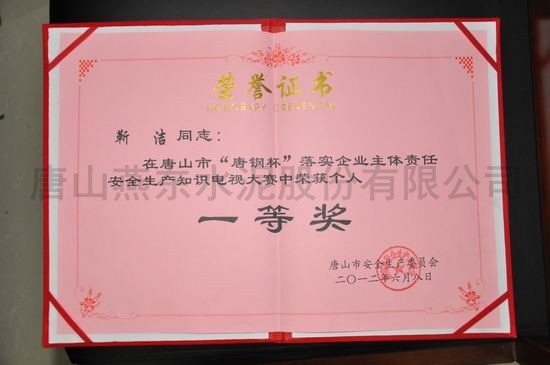 荣誉证书
HONORARY CREDENTIAL
靳 洁 同志：
在唐山市“唐钢杯”落实企业主体责任
安全生产知识电视大赛中荣获个人
一等奖
唐山市安全生产委员会
二〇一二年六月八日
唐山燕东水泥股份有限公司